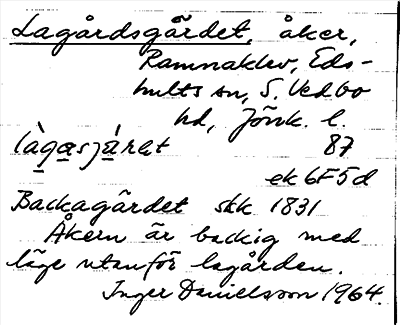 Lagårdsgärdet, åker,
Ramnaklev, Eds-
hults sn, S. Vedbo
hd, Jönk. l.
làgasjǻret 87
ek 6F5d
Backagärdet skk 1831
Åkern är backig med
läge utanför lagården.
Inger Danielsson 1964